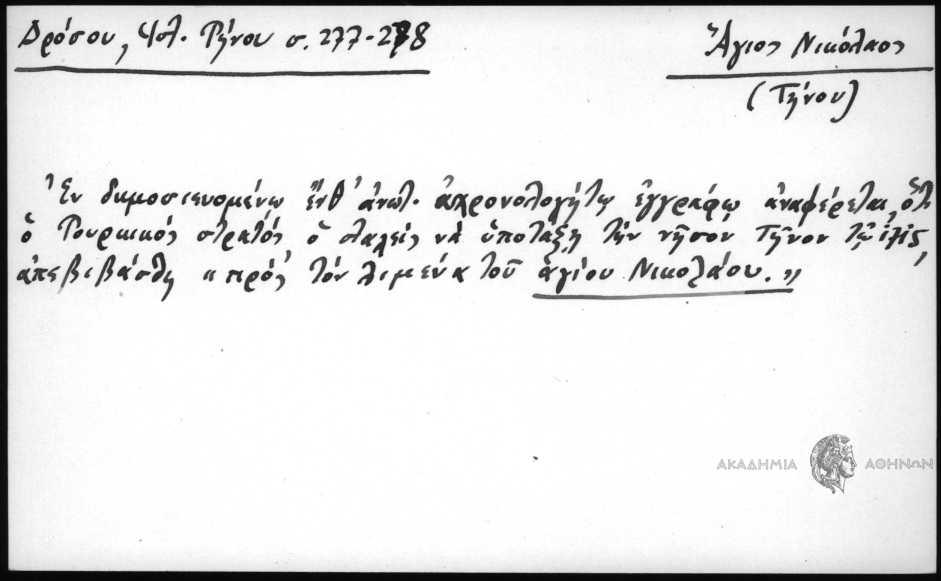 Δρόσου, Ἱστ. Τήνου σ. 277-278
Ἅγιος Νικόλαος
(Τήνου)
Ἐν δημοσιευομένῳ ἔνθ' ἀνωτ. ἀχρονολογήτῳ ἐγγράφῳ ἀναφέρεται, ὅτι
ὁ Τουρκικός στρατός, ὁ σταλείς νὰ ὑποτάξῃ τὴν νῆσον Τῆνον τῷ 1715,
ἀπεβιβάσθη « πρός τόν λιμένα τοῦ ἁγίου Νικολάου. »
ΑΚΑΔΗΜΙΑ ΑΘΗΝΩΝ